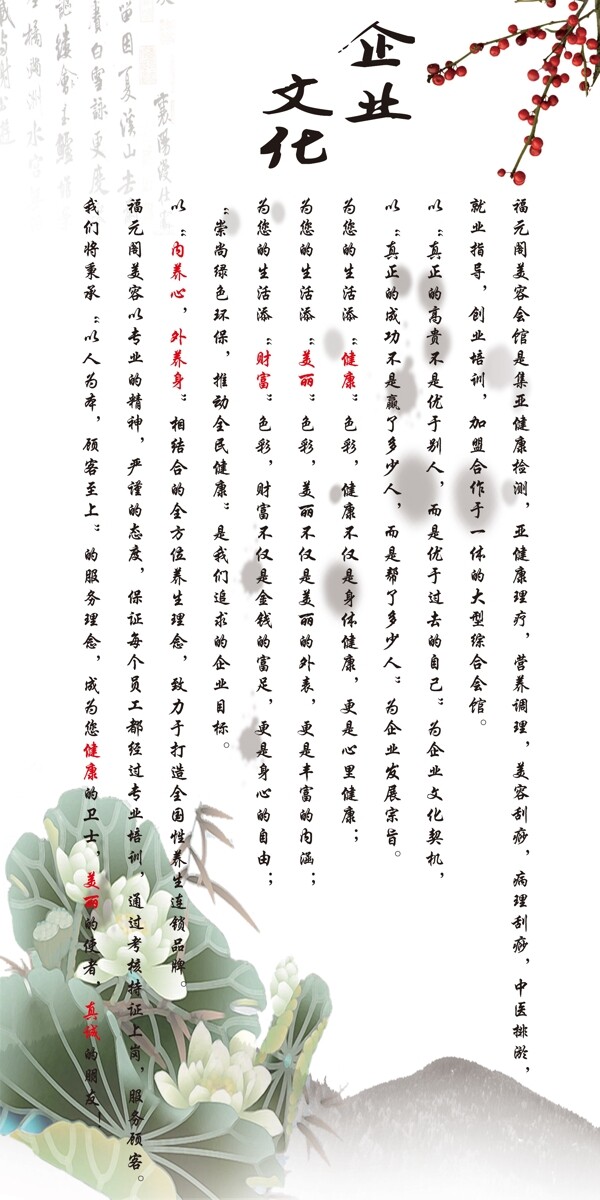 企业
文化
福元阁美容会馆是集亚健康检测，亚健康理疗，营养调理，美容刮痧，病理刮痧，中医排淤，
就业指导，创业培训，加盟合作于一体的大型综合会馆。
以“真正的高贵不是优于别人，而是优于过去的自己”为企业文化契机，
以“真正的成功不是赢了多少人，而是帮了多少人”为企业发展宗旨。
为您的生活添“健康”色彩，健康不仅是身体健康，更是心里健康；
为您的生活添“美丽”色彩，美丽不仅是美丽的外表，更是丰富的内涵；
为您的生活添“财富”色彩，财富不仅是金钱的富足，更是身心的自由；
“崇尚绿色环保，推动全民健康”是我们追求的企业目标。
以“内养心，外养身”相结合的全方位养生理念，致力于打造全国性养生连锁品牌。
福元阁美容以专业的精神，严谨的态度，保证每个员工都经过专业培训，通过考核持证上岗，服务顾客。
我们将秉承“以人为本，顾客至上”的服务理念，成为您健康的卫士，美丽的使者，真诚的朋友！